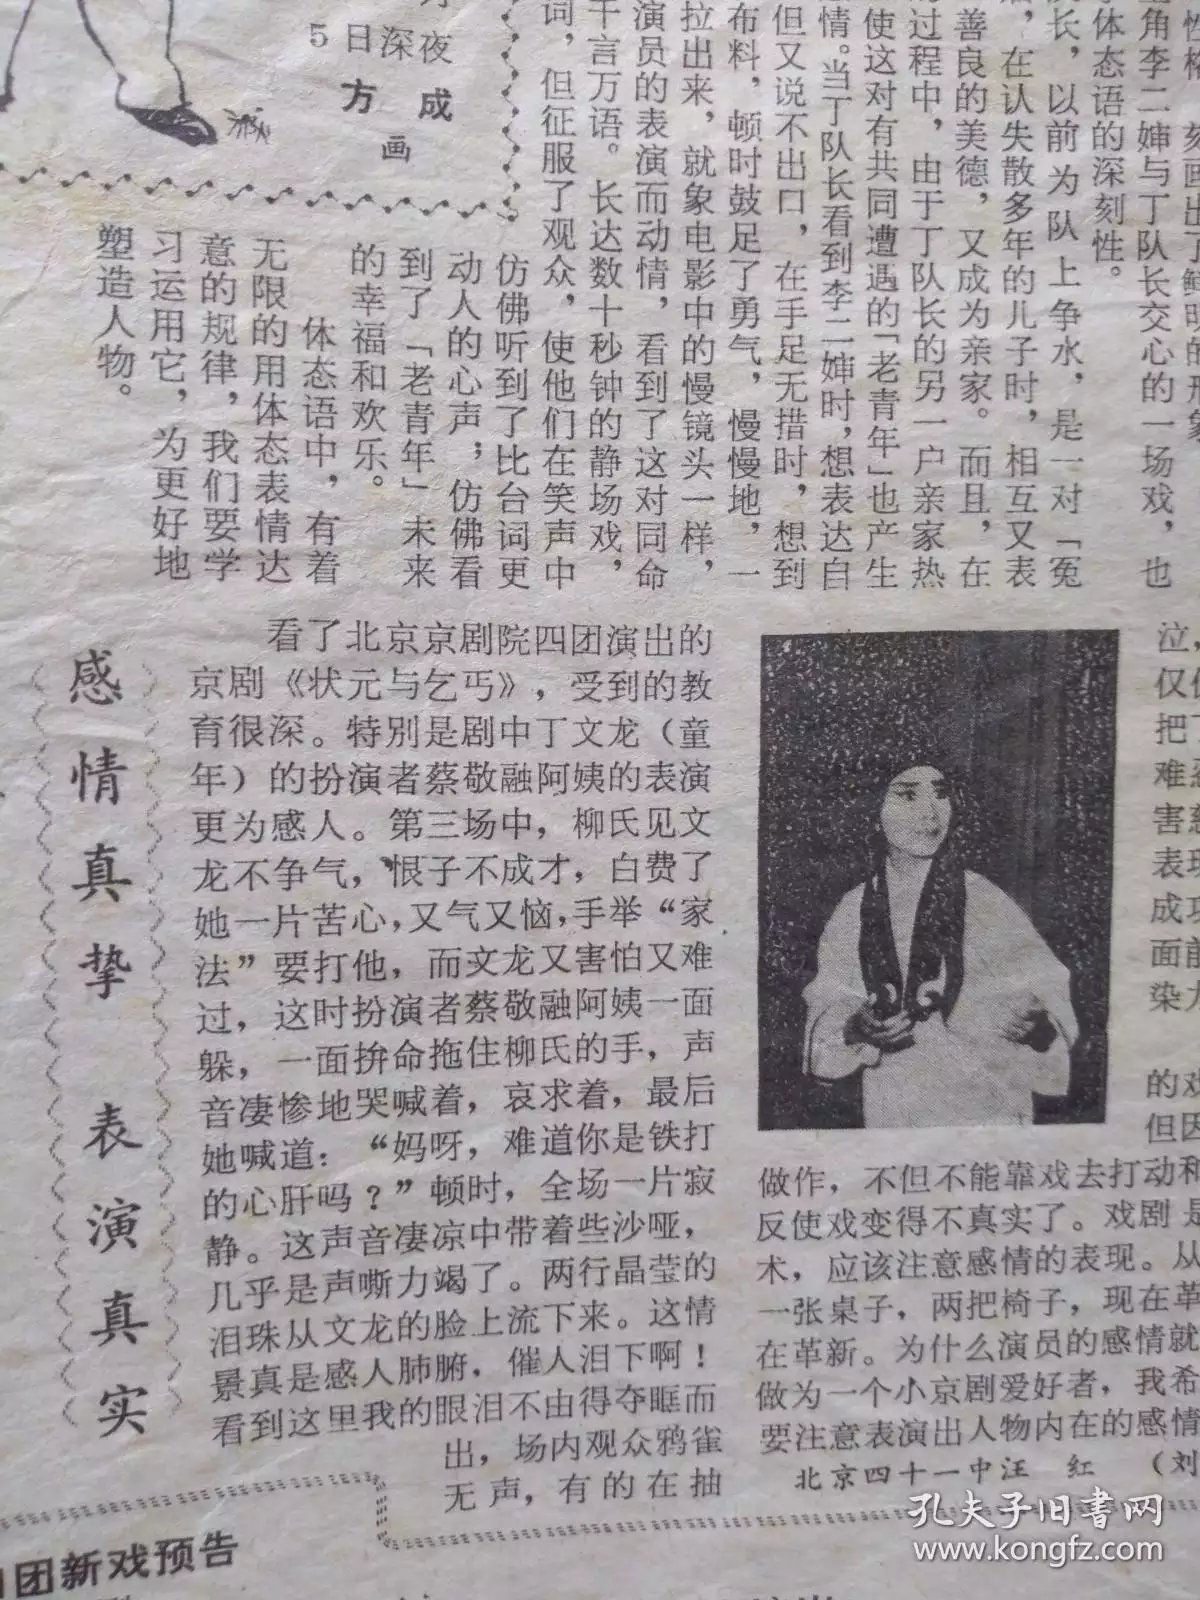 5日深夜
方成
画
性格，刻画出了鲜明的形象
主角李二婶与丁队长交心的一场戏，也
体态语的深刻性。
队长，以前为队上争水，是一对「冤
，在认失散多年的儿子时，相互又表
善良的美德，又成为亲家。而且，在
过程中，由于丁队长的另一户亲家热
使这对有共同遭遇的「老青年」也产生
情。当丁队长看到李二婶时，想表达自
但又说不出口，在手足无措时，想到
布料，顿时鼓足了勇气，慢慢地，一
拉出来，就象电影中的慢镜头一样，
演员的表演而动情，看到了这对同命
千言万语。长达数十秒钟的静场戏，
词，但征服了观众，使他们在笑声中
仿佛听到了比台词更
动人的心声；仿佛看
到了「老青年」未来
的幸福和欢乐。
体态语中，有着
无限的用体态表情达
意的规律，我们要学
习运用它，为更好地
塑造人物。
感情真挚 表演真实
看了北京京剧院四团演出的
京剧《状元与乞丐》，受到的教
育很深。特别是剧中丁文龙（童
年）的扮演者蔡敬融阿姨的表演
更为感人。第三场中，柳氏见文
龙不争气，恨子不成才，白费了
她一片苦心，又气又恼，手举“家
法”要打他，而文龙又害怕又难
过，这时扮演者蔡敬融阿姨一面
躲，一面拚命拖住柳氏的手，声
音凄惨地哭喊着，哀求着，最后
她喊道：“妈呀，难道你是铁打
的心肝吗？”顿时，全场一片寂
静。这声音凄凉中带着些沙哑，
几乎是声嘶力竭了。两行晶莹的
泪珠从文龙的脸上流下来。这情
景真是感人肺腑，催人泪下啊！
看到这里我的眼泪不由得夺眶而
出，场内观众鸦雀
无声，有的在抽
泣，
仅仅
把
难
害
表现
成功
面前
染
的戏
但因
做作，不但不能靠戏去打动和
反使戏变得不真实了。戏剧是
术，应该注意感情的表现。从
一张桌子，两把椅子，现在革
在革新。为什么演员的感情就
做为一个小京剧爱好者，我希
要注意表演出人物内在的感情
北京四十一中汪 红 （刘
团新戏预告
孔夫子旧书网
www.kongfz.com